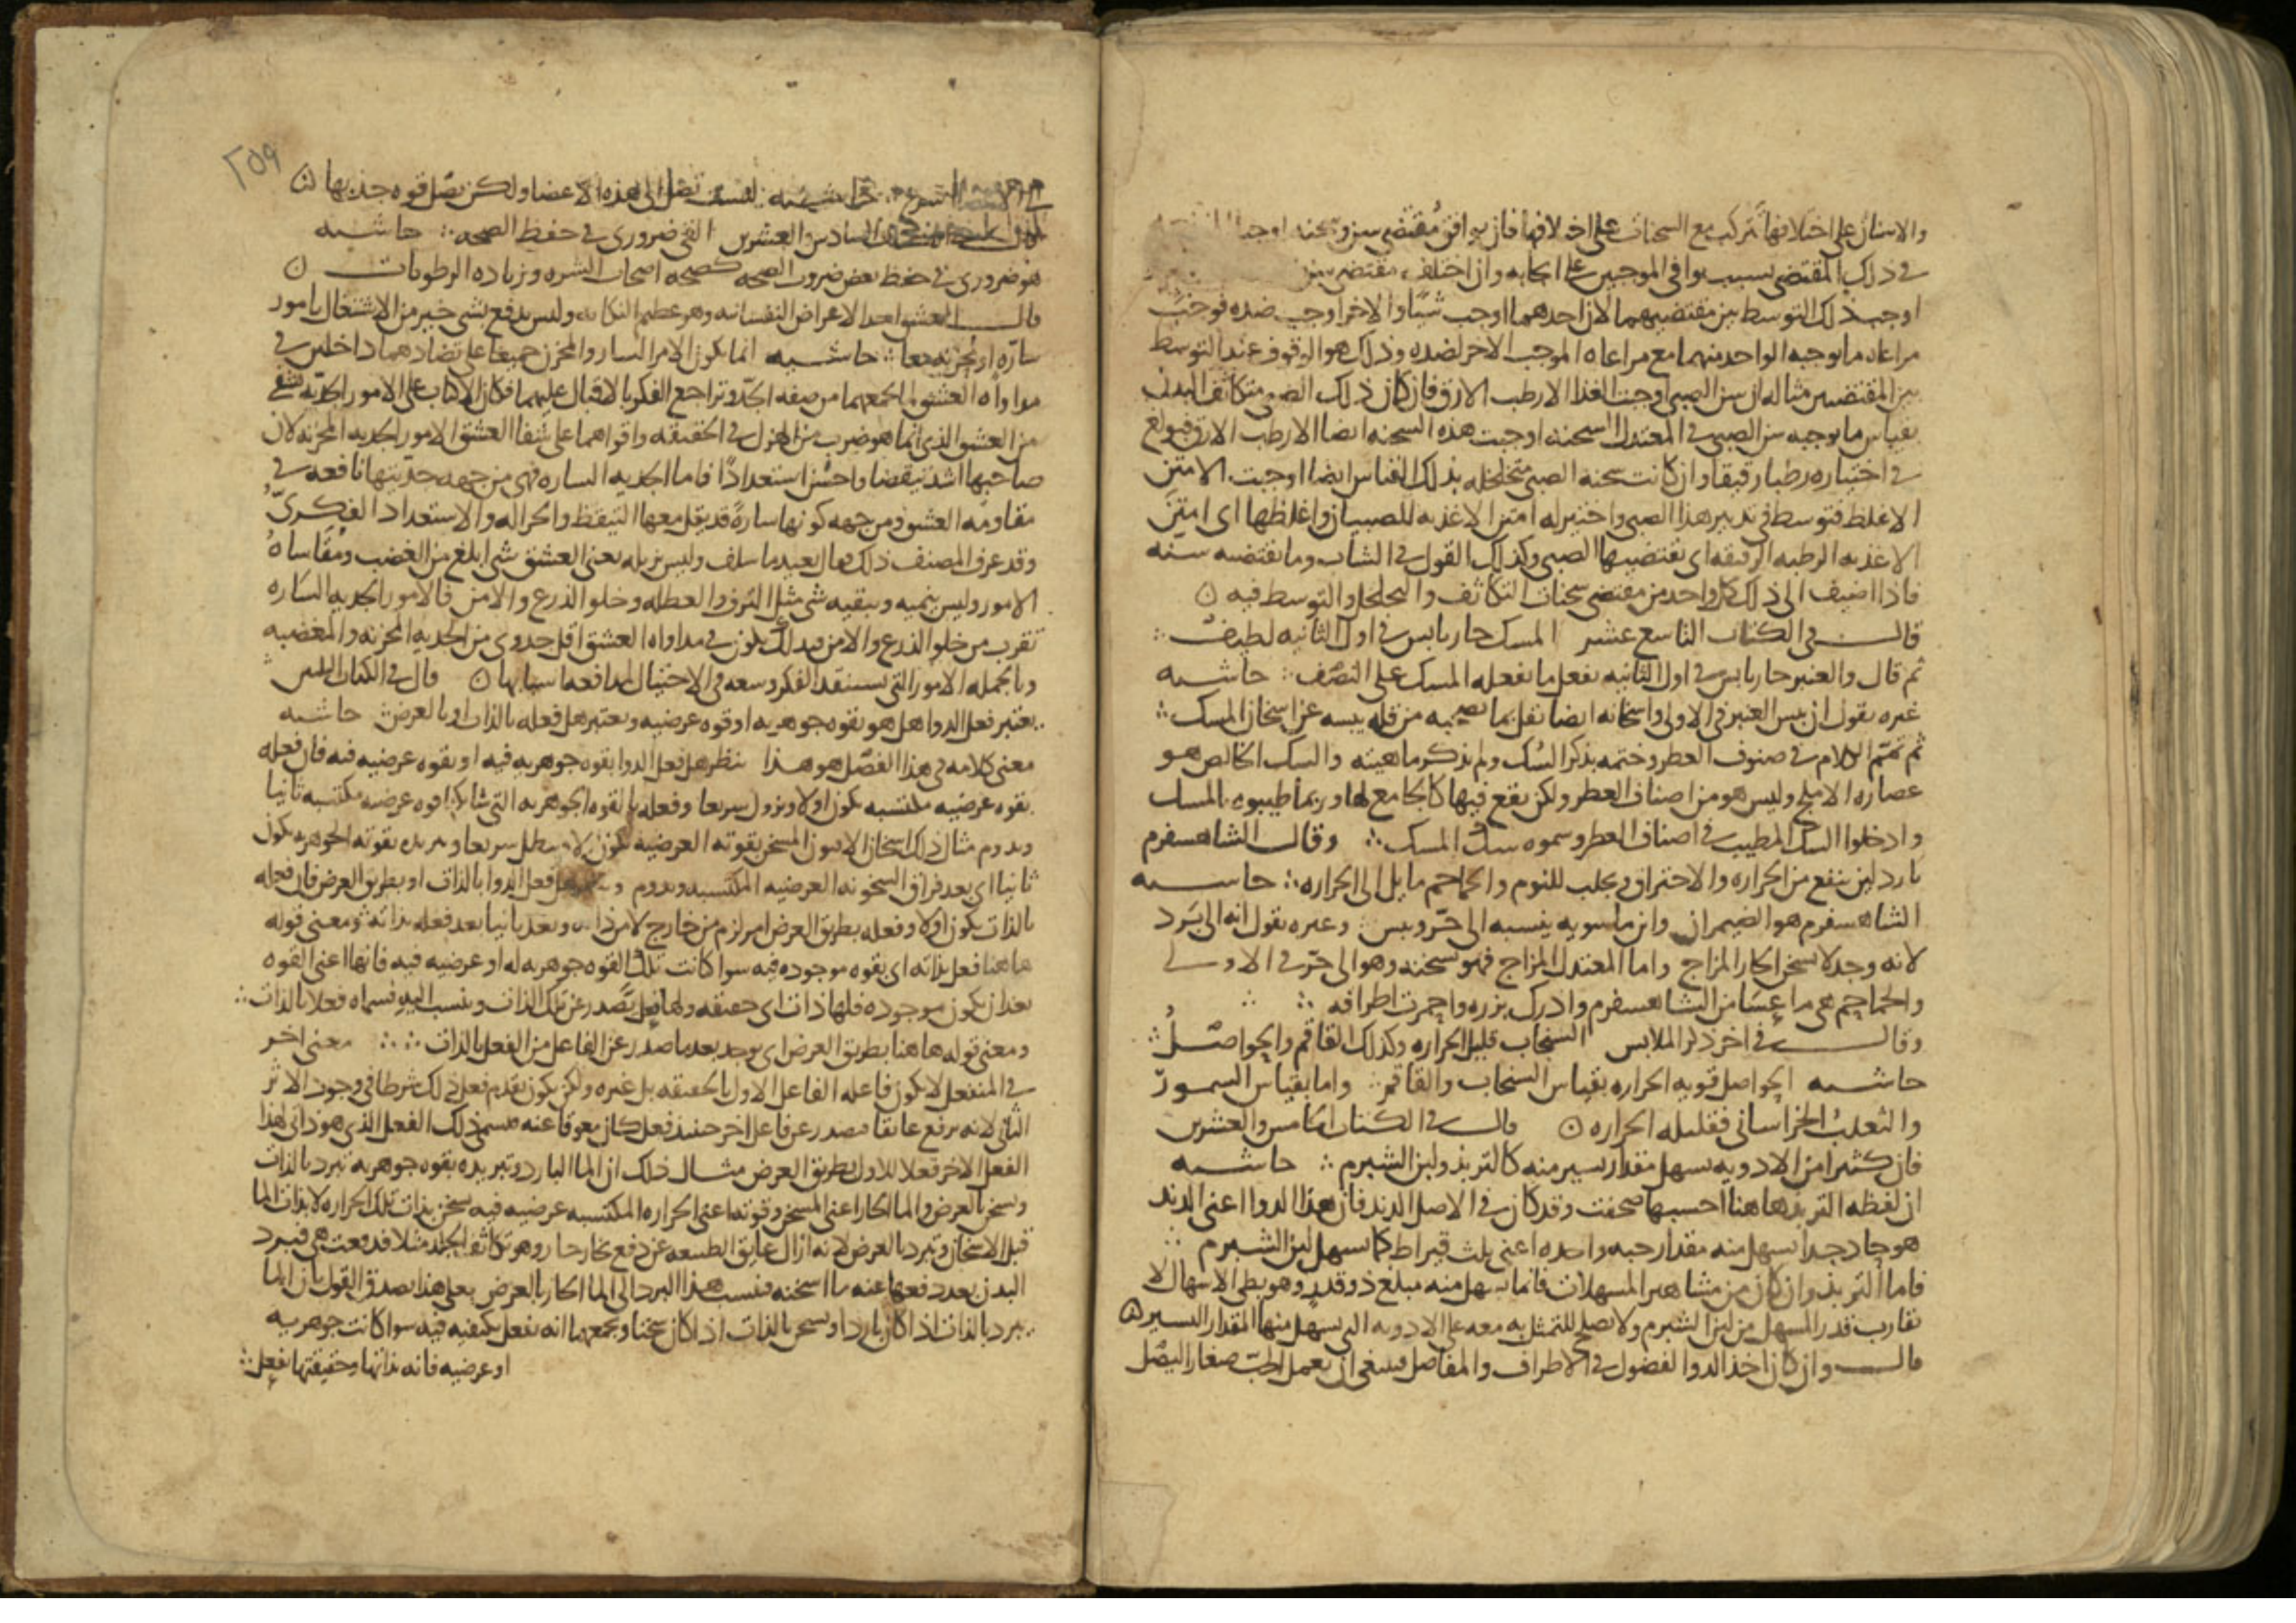 والاسنان على اختلافها تتركب مع السحنات على اختلافها فان يوافق مقتضى سن وسحنة اوجبا
في ذلك المقتضى بسبب توافي الموجبين على ايجابه وان اختلف مقتضى سن
اوجب ذلك التوسط بين مقتضيهما لان احدهما اوجب شيًا والاخر اوجب ضده فوجب
مراعاه ما يوجبه الواحد منهما مع مراعاه الموجب الاخر لضده وذلك هو الوقوف عند التوسط
بين المقتضيين مثاله ان سن الصبي اوجبت الغذا الارطب الارق فان كان ذلك الصبي متكاثف البدن
بقياس ما يوجبه سن الصبي في المعتدل السحنه اوجبت هذه السحنه ايضا الارطب الارق
في اختياره رطبا رقيقا وان كانت سحنة الصبي متخلخله بذلك القياس ايضا اوجبت الامتن
الاغلظ فتوسط في تدبير هذا الصبي واختير له امتن الاغذيه للصبيان واغلظها اى امتن
الاغذيه الرطبه الرقيقه اى تقتضيها الصبي وكذلك القول في الشاب وما تقتضيه سنه
فاذا اضيف الى ذلك كل واحد من مقتضى سحنات التكاثف والتخلخل والتوسط فيه ○
قال في الكتاب التاسع عشر المسك حار يابس في اول الثانيه لطيف
ثم قال والعنبر حار يابس في اول الثانيه يفعل ما يفعله المسك على النصف حاشيه
غيره يقول ان يبس العنبر في الاولى واسخانه ايضا نقل بما من قله يبسه عن اسخان المسك
ثم تمم الكلام في صنوف العطر وختمه بذكر السك ولم يذكر ماهيته والسك الخالص هو
عصاره الاملج وليس هو من اصناف العطر ولكن يقع فيها كالجامع لها وربما طيبوه بالمسك
وادخلوا السك المطيب في اصناف العطر وسموه سك المسك وقال الشاهسفرم
بارد لين ينفع من الحراره والاحتراق ويجلب للنوم والحماحم مايل الى الحراره حاشيه
الشاهسفرم هو الضيمران وابن ماسويه ينسبه الى حر ويبس وغيره يقول انه الى برد
لانه وجد لا يسخن الحار المزاج واما المعتدل المزاج فهو يسخنه وهو الى حر في الاولى
والحماحم هى ما عسا من الشاهسفرم وادرك بزره واحمرت اطرافه
وقال في اخر ذكر الملابس السنجاب قليل الحراره وكذلك القاقم والحواصل
حاشيه الحواصل قويه الحراره بقياس السنجاب والقاقم واما بقياس السمور
والثعلب الخراساني فقليله الحراره ○ قال في الكتاب الخامس والعشرين
فان كثيرا من الادويه يسهل مقدار يسير منه كالتربذ ولبن الشبرم حاشيه
ان لفظه التربذ هاهنا احسبها صحفت وقد كان في الاصل الدند فان هذا الدوا اعنى الدند
هو حاد جدا يسهل منه مقدار حبه واحده اعنى ثلث قيراط كما يسهل لبن الشبرم
فاما التربذ وان كان من مشاهير المسهلات فانما يسهل منه مبلغ ذو قدر وهو بطى الاسهال لا
تقارب قدر المسهل من لبن الشبرم ولا يصلح للتمثل به معه على الادويه التي يسهل منها المقدار اليسير
قال وان كان اخذ الدوا لفضول في الاطراف والمفاصل فينبغى ان يعمل الحب صغار اليصل
تصل الى هذه الاعضا ولكن تصل قوه جذبها ○
السادس والعشرين القى ضرورى في حفظ الصحه حاشيه
هو ضرورى في حفظ بعض ضروب الصحه كصحه اصحاب الشره وزياده الرطوبات ○
قال العشق احد الاعراض النفسانيه وهو عظيم النكايه وليس يدفع بشى خير من الاشتغال بامور
ساره او محزنه معا حاشيه انما يكون الامر السار والمحزن جميعا على تضادهما داخلين في
مداواه العشق لما يجمعهما من صفه الجد وتراجع الفكر بالاقبال عليهما فكان الاكباب على الامور الجديه
من العشق الذى انما هو ضرب من الهزل في الحقيقه واقواهما على شفا العشق الامور الجديه المحزنه لان
صاحبها اشد تيقضا واحسن استعدادا فاما الجديه الساره فهى من جهه جديتها نافعه في
مقاومه العشق ومن جهه كونها سارة قد يقل معها التيقظ والحراله والاستعداد الفكرى
وقد عرف المصنف ذلك بعيد ما سلف وليس يزيله يعنى العشق شى ابلغ من الغضب ومقاساه
الامور وليس ينميه ويبقيه شى مثل الترف والعطله وخلو الذرع والامن فالامور الجديه الساره
تقرب من خلو الذرع والامن فبذلك يكون في مداواه العشق اقل جدوى من الجديه المحزنه والمغضبه
وبالجمله الامور التي تستنفد الفكر وسعه في الاحتيال لمدافعه اسبابها ○ قال في الكتاب
يعتبر فعل الدوا هل هو بقوه جوهريه او قوه عرضيه ويعتبر هل فعله بالذات او بالعرض حاشيه
معنى كلامه في هذا الفصل هو هذا ينظر هل فعل الدوا بقوه جوهريه فيه او بقوه عرضيه فيه فان فعله
بقوه عرضيه مكتسبه يكون اولا ويزول سريعا وفعله بالقوه الجوهريه التي قوه عرضيه مكتسبه ثانيا
ويدوم مثال ذلك اسخان الافيون المسخن بقوته العرضيه يكون لا يبطل سريعا وتبريده بقوته الجوهريه يكون
ثانيا اى بعد فراق السخونه العرضيه المكتسبه ويدوم هل فعل الدوا بالذات او بطريق العرض فان فعله
بالذات يكون اولا وفعله بطريق العرض امر لزم من خارج لا من ذاته وبعد ثانيا بعد فعله بذاته ومعنى قوله
هاهنا فعل بذاته اى بقوه موجوده فيه سوا كانت تلك القوه جوهريه له او عرضيه فيه فانها اعنى القوه
بعد ان يكون موجوده فلها ذات اى حقيقه ولها فعل يصدر عن تلك الذات وينسب اليه فسماه فعلا بالذات
ومعنى قوله هاهنا بطريق العرض اى يوجد بعد ما صدر عن الفاعل من الفعل بالذات معنى اخر
في المنفعل لا يكون فاعله الفاعل الاول بالحقيقه بل غيره ولكن يكون تقديم فعل ذلك شرطا في وجود الاثر
الثانى لانه يرفع عايقا فيصدر عن فاعل اخر حينئذ فعل كان معوقا عنه فسمى ذلك الفعل الذى هو ذاتى لهذا
الفعل الاخر فعلا للاول بطريق العرض مثال ذلك ان الما البارد وتبريده بقوه جوهريه تبرد بالذات
وتسخن بالعرض والما الحار اعنى المسخن وقوته اعنى الحراره المكتسبه عرضيه فيه تسخن بذات تلك الحراره لا بذات الما
قبل الاسخان وتبرد بالعرض لانه ازال عايق الطبيعه عن دفع بخار حار وهو تكاثف الجلد مثلا فدفعت هى فيبرد
البدن بعد دفعها عنه ما اسخنه فينسب هذا البرد الى الما الحار بالعرض فعلى هذا يصدق القول بان الما
يبرد بالذات اذا كان باردا ويسخن بالذات اذا كان سخنا ويجمعهما انه يفعل بكيفيه فيه سوا كانت جوهريه
او عرضيه فانه بذاتها وحقيقتها تفعل
٢٥٩